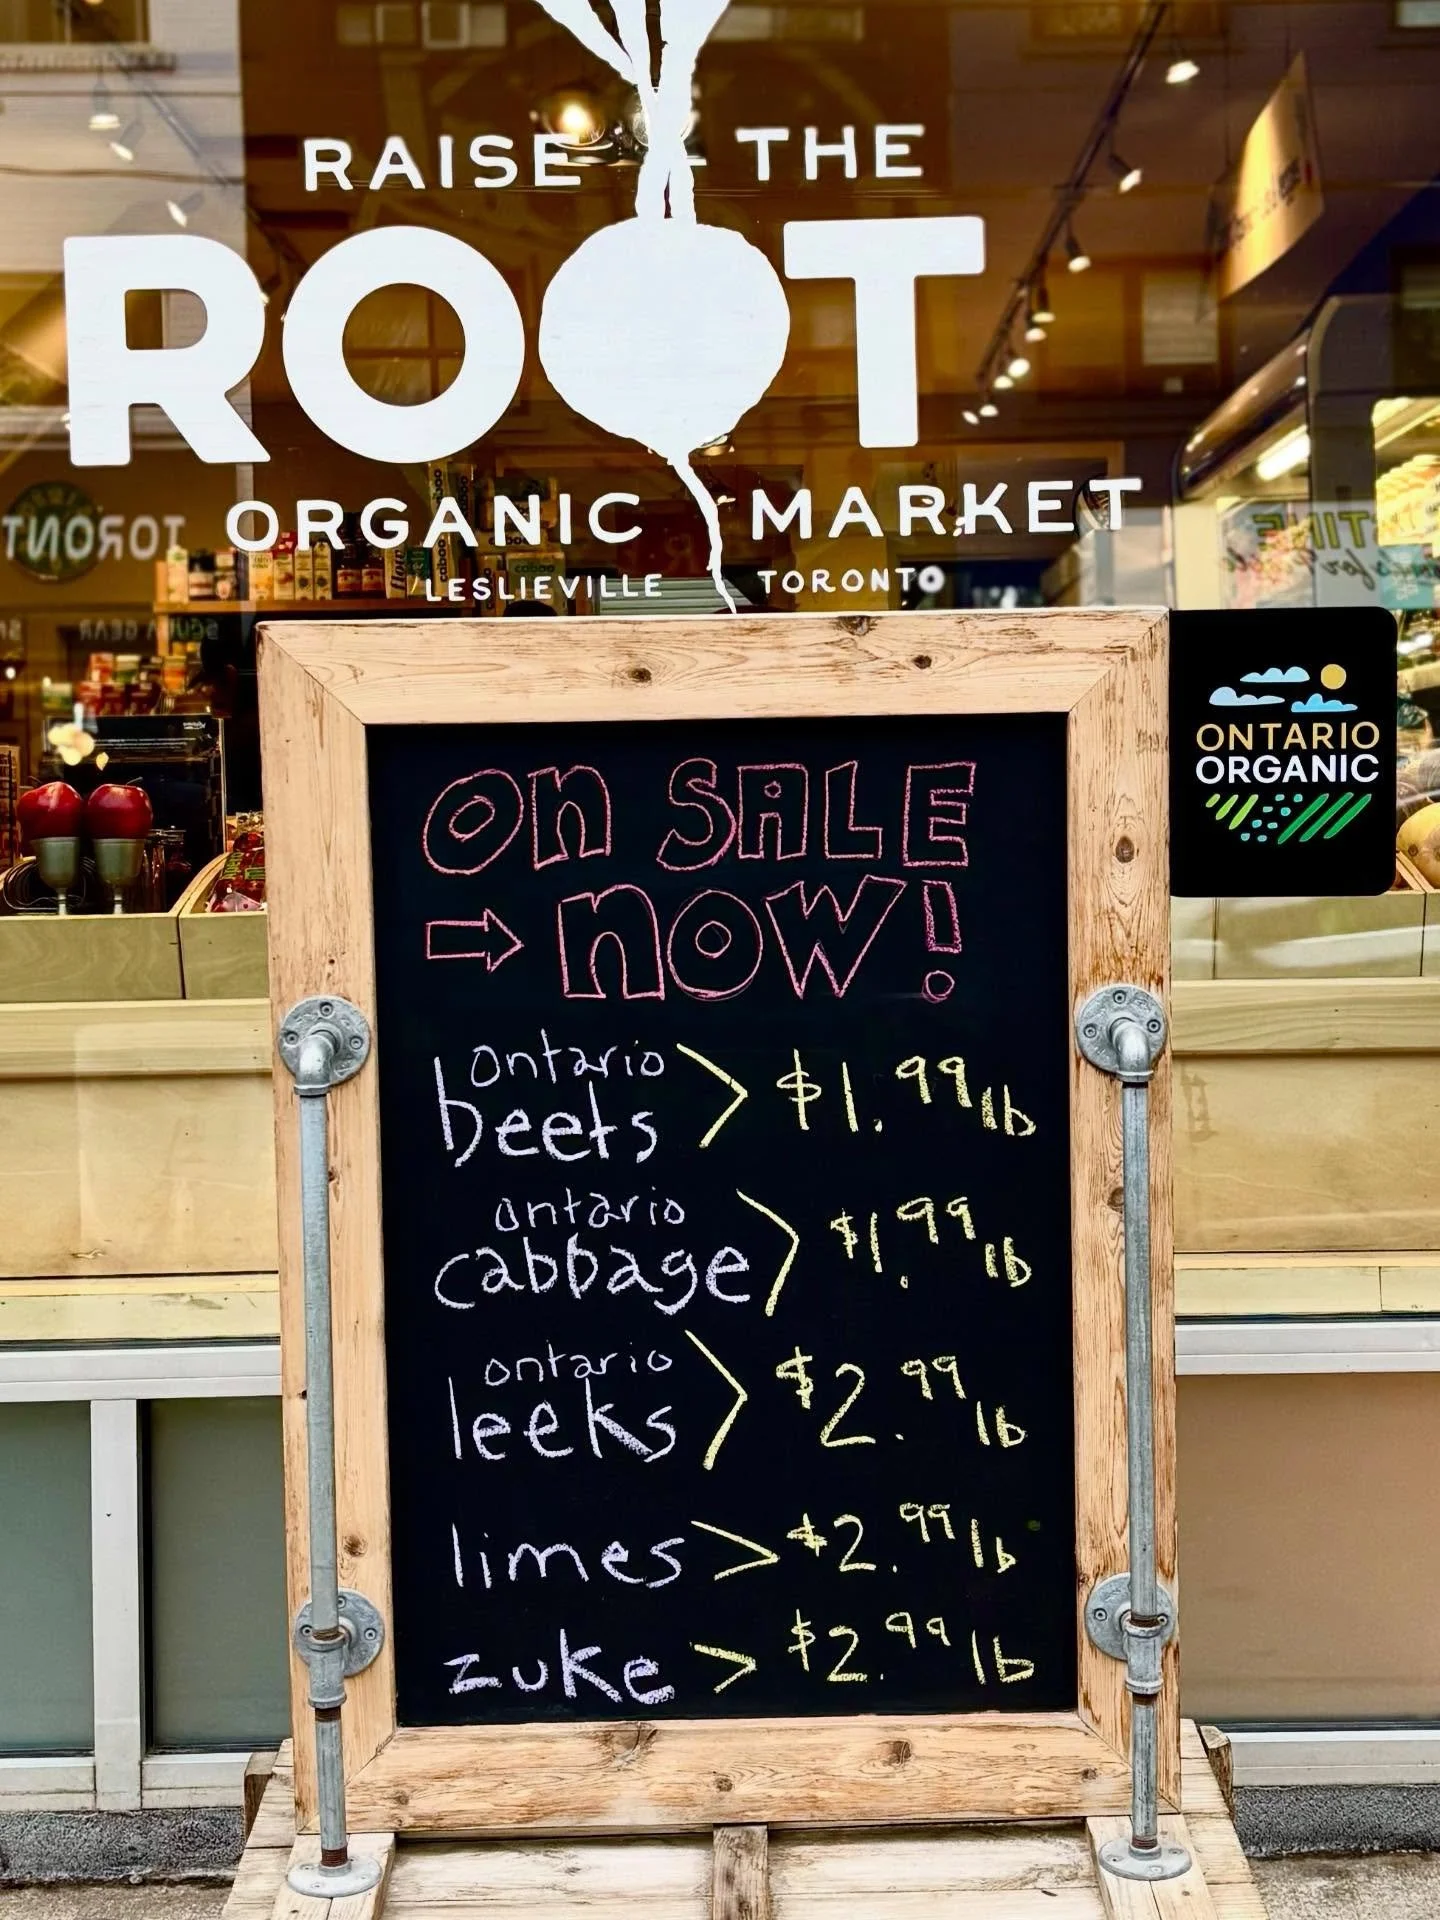 RAISE THE
ROOT
ORGANIC MARKET
LESLIEVILLE TORONTO
ONTARIO
ORGANIC
On SALE
→ nOW!
ontario
beets > $1.99 lb
ontario
cabbage > $1.99 lb
ontario
leeks > $2.99 lb
limes > $2.99 lb
zuke > $2.99 lb
caboo
caboo
TORONT
SCUBA GEAR